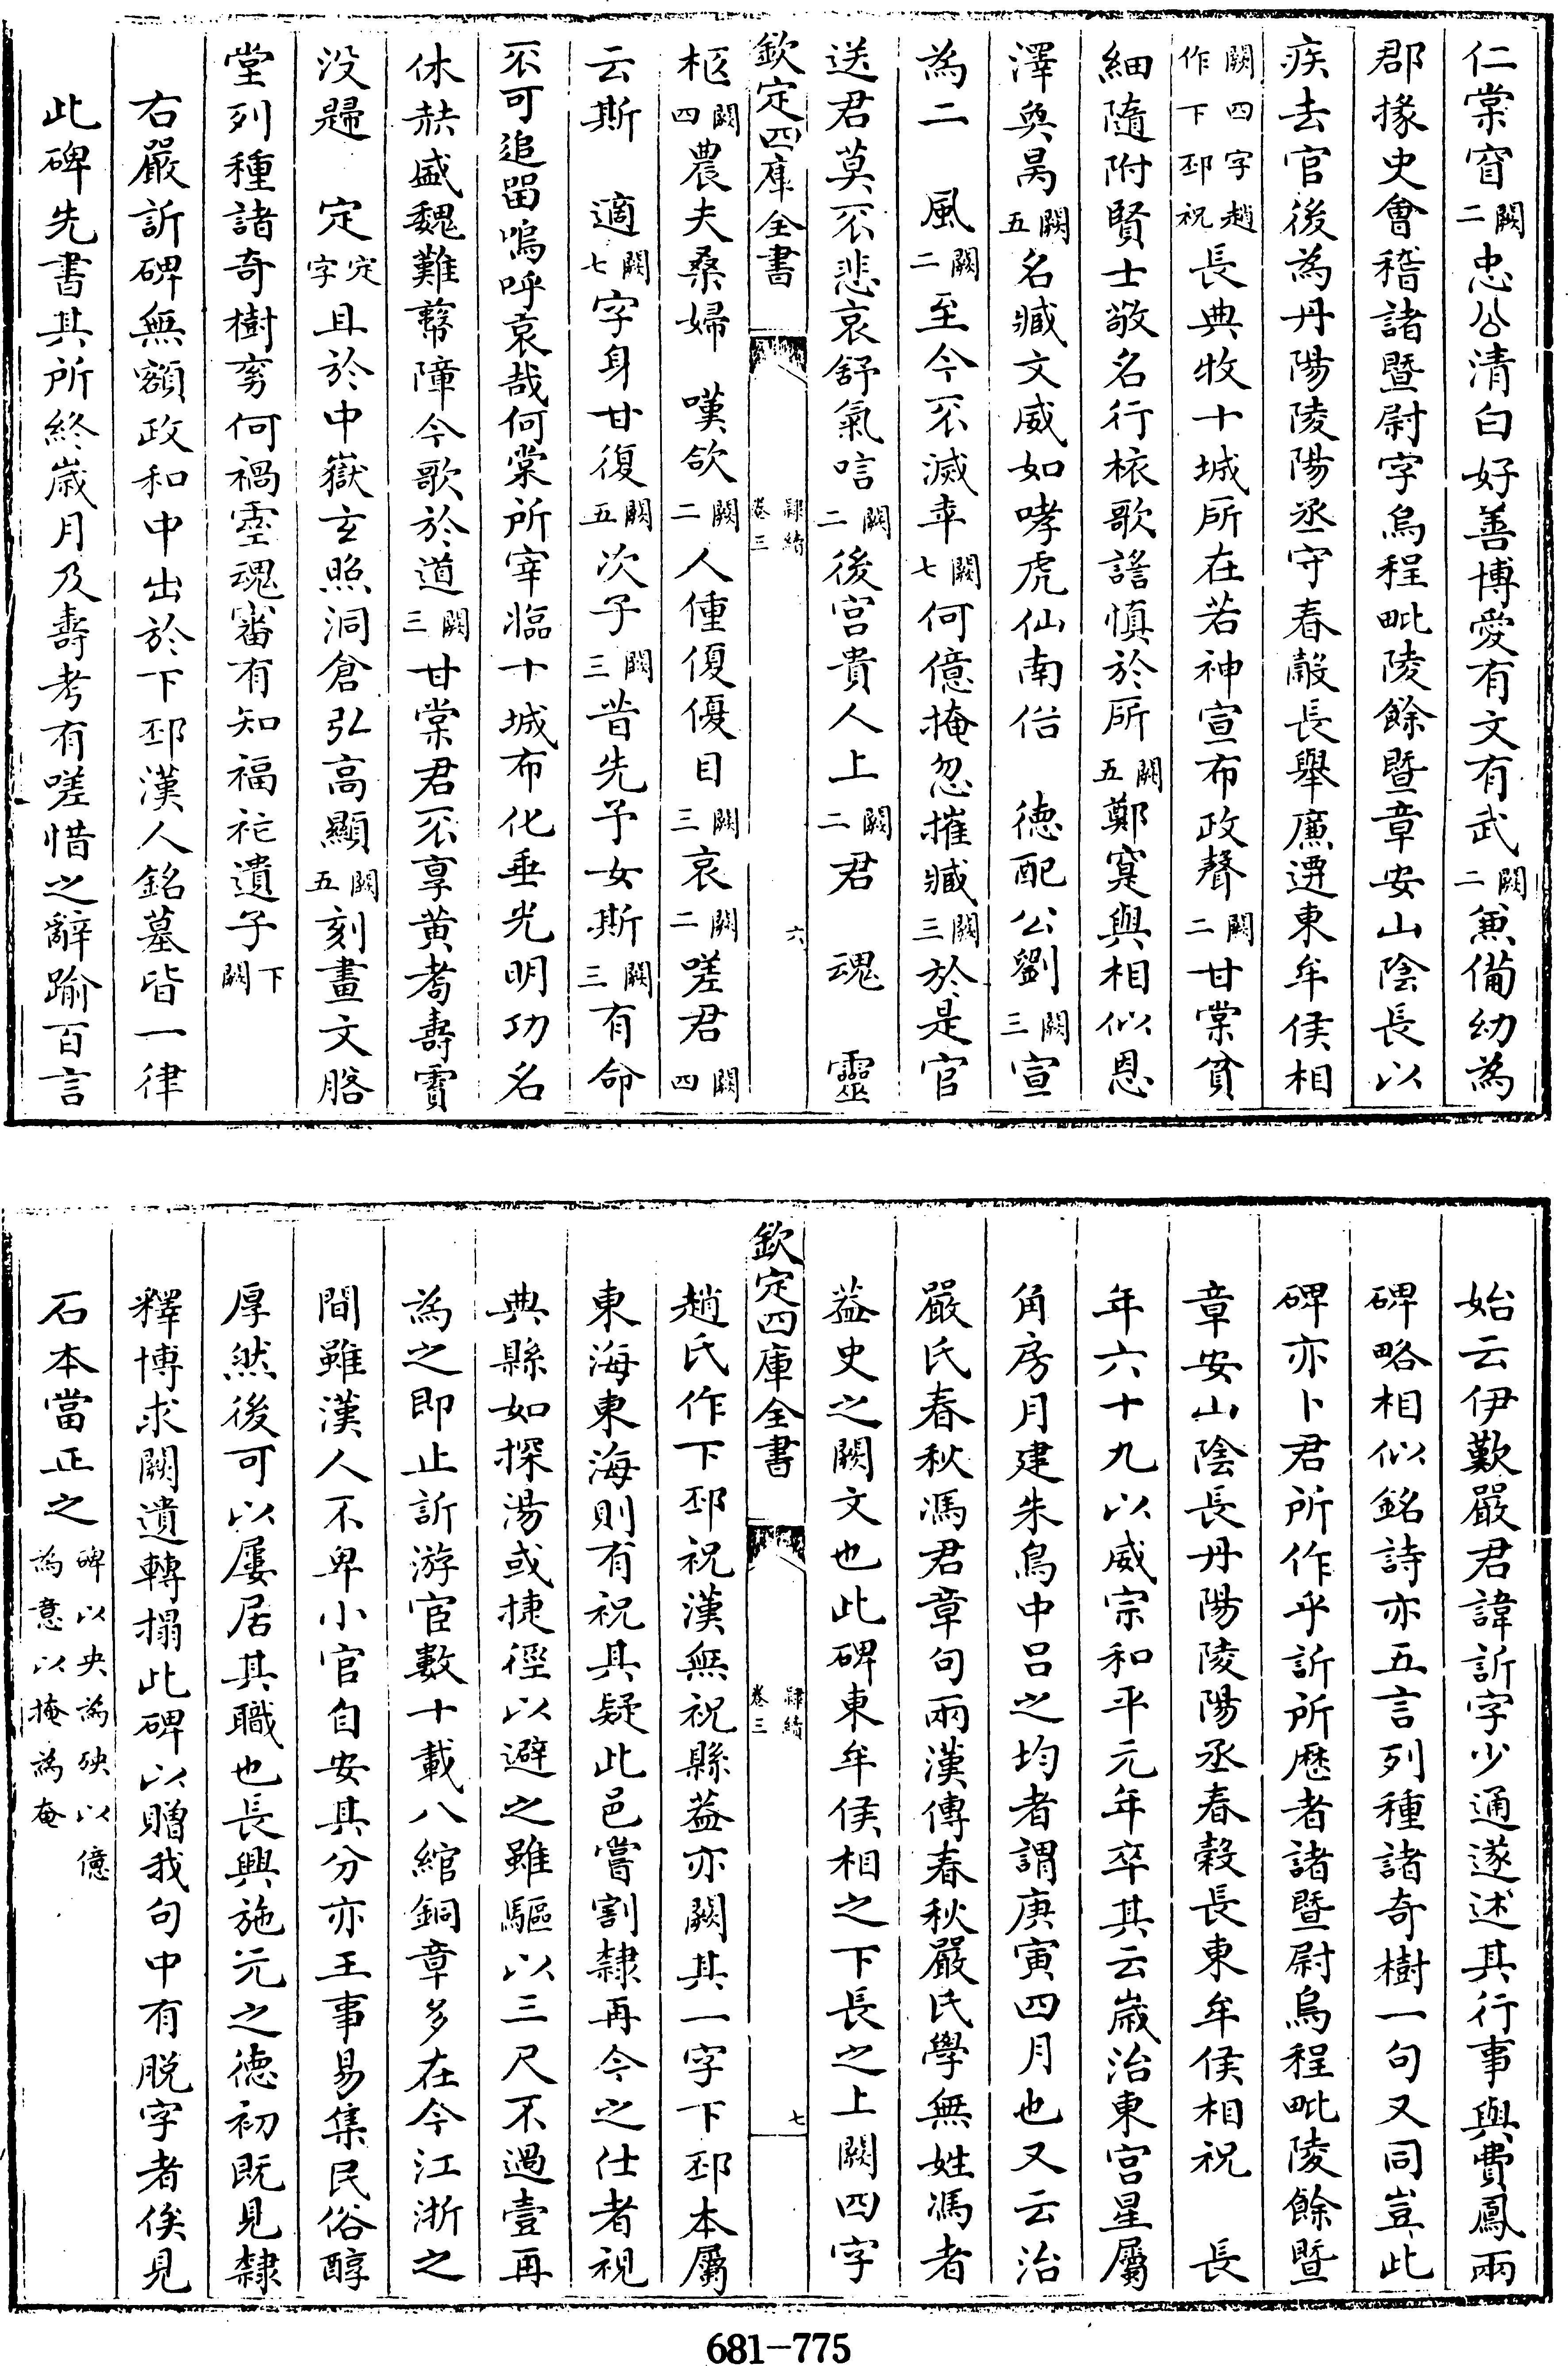 仁棠窅闕二忠公清白好善博愛有文有武闕二兼備幼為
郡掾史會稽諸暨尉字烏程毗陵餘暨章安山陰長以
疾去官後為丹陽陵陽丞守春穀長舉廉遷東牟侯相
闕四字趙作下邳祝長典牧十城所在若神宣布政聲闕二甘棠貧
細隨附賢士敬名行棶歌謠慎於所闕五鄭寞與相似恩
澤奐昺闕五名臧文威如哮虎仙南佋 德配公劉闕三宣
為二 風闕二至今不滅幸闕七何億掩忽摧臧闕三於是官
送君莫不悲哀舒氣唁闕二後宮貴人上闕二君 魂 靈
欽定四庫全書 隸續卷三 六
柩闕四農夫桑婦 嘆欲闕二人僮優優目闕三哀闕二嗟君闕四
云斯 適闕七字身甘復闕五次子闕三昔先予女斯闕三有命
不可追留嗚呼哀哉何棠所宰臨十城布化垂光明功名
休赫盛魏難彅障今歌於道闕三甘棠君不享黃耇壽賓
没歸 定定字且於中嶽玄照洞倉弘高顯闕五刻畫文胳
堂列種諸奇樹奓何禍靈魂審有知福祉遺子下闕
右嚴訢碑無額政和中出於下邳漢人銘墓皆一律
此碑先書其所終歲月及壽考有嗟惜之辭踰百言
始云伊歎嚴君諱訢字少通遂述其行事與費鳳兩
碑略相似銘詩亦五言列種諸奇樹一句又同豈此
碑亦卜君所作乎訢所歷者諸暨尉烏程毗陵餘暨
章安山陰長丹陽陵陽丞春穀長東牟侯相祝 長
年六十九以威宗和平元年卒其云歲治東宫星屬
角房月建朱鳥中呂之均者謂庚寅四月也又云治
嚴氏春秋馮君章句兩漢傳春秋嚴氏學無姓馮者
葢史之闕文也此碑東牟侯相之下長之上闕四字
欽定四庫全書 隸續卷三 七
趙氏作下邳祝漢無祝縣葢亦闕其一字下邳本屬
東海東海則有祝其疑此邑嘗割隸再今之仕者視
典縣如探湯或捷徑以避之雖驅以三尺不過壹再
為之即止訢游宦數十載八綰銅章多在今江浙之
間雖漢人不卑小官自安其分亦王事易集民俗醇
厚然後可以屢居其職也長興施元之德初既見隸
釋博求闕遺轉搨此碑以贈我句中有脱字者俟見
石本當正之碑以央為殃以億為意以掩為奄
681-775